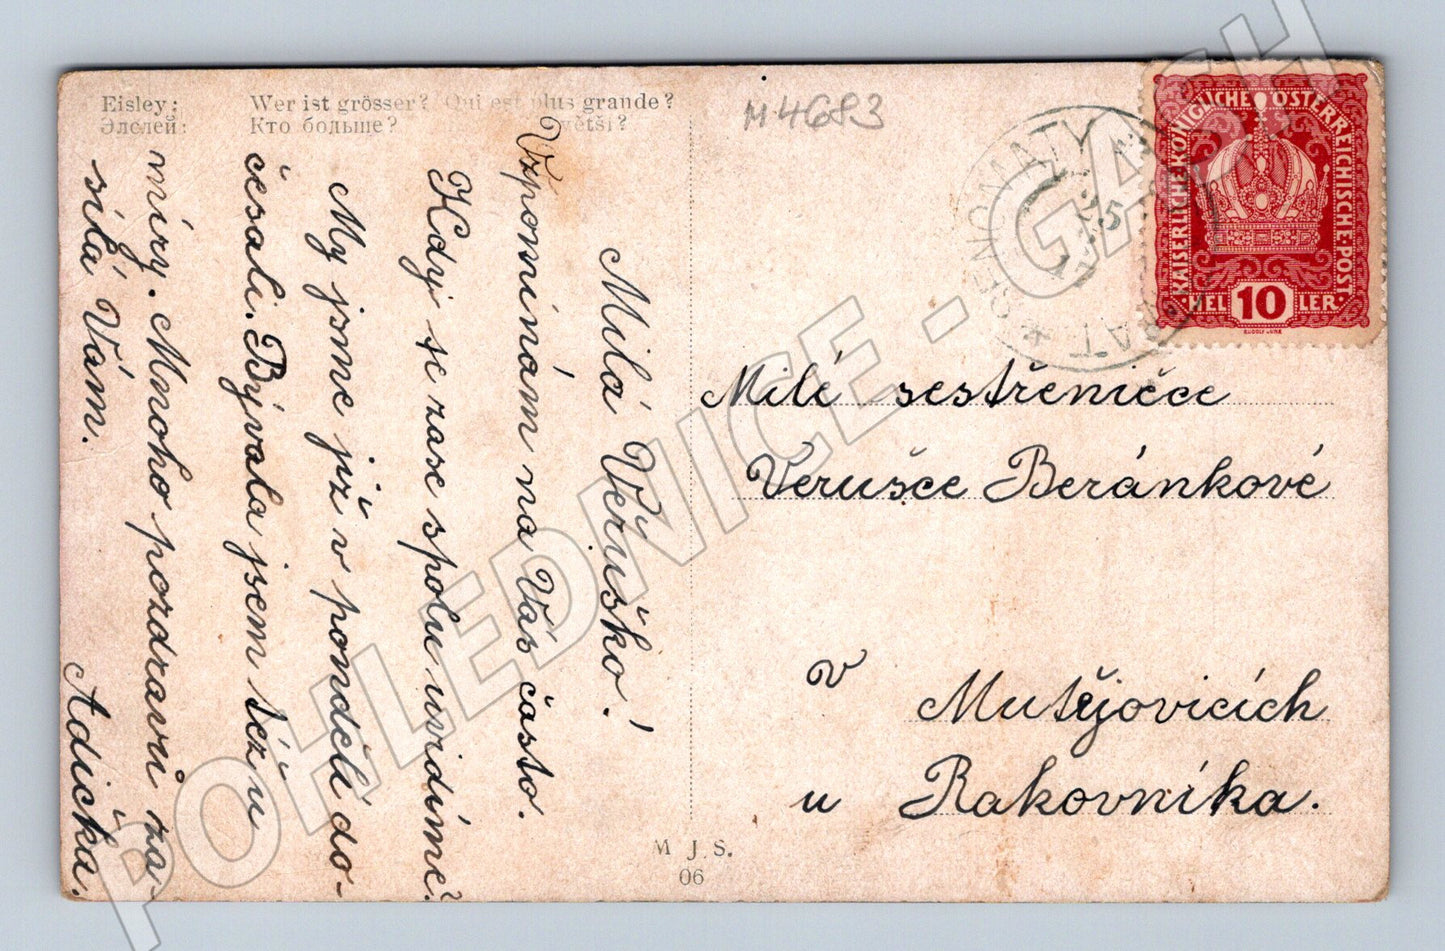 Eisley: Wer ist grösser? Qui est plus grande?
Элслей: Кто больше? větší?
M 4683
KAISERLICHE KÖNIGLICHE ÖSTERREICHISCHE POST
HELLER 10
RUDOLF JUNK
SENOMATY
25
Milá Věruško!
Vzpomínám na Vás často.
Kdy se zase spolu uvidíme?
My jsme již v pondělí do-
česali. Bývala jsem též u
míry. Mnoho pozdravů za-
sílá Vám.
Adička.
Milé sestřeničce
Verušce Beránkové
v Mutějovicích
u Rakovníka.
M. J. S.
06
POHLEDNICE - GALASH